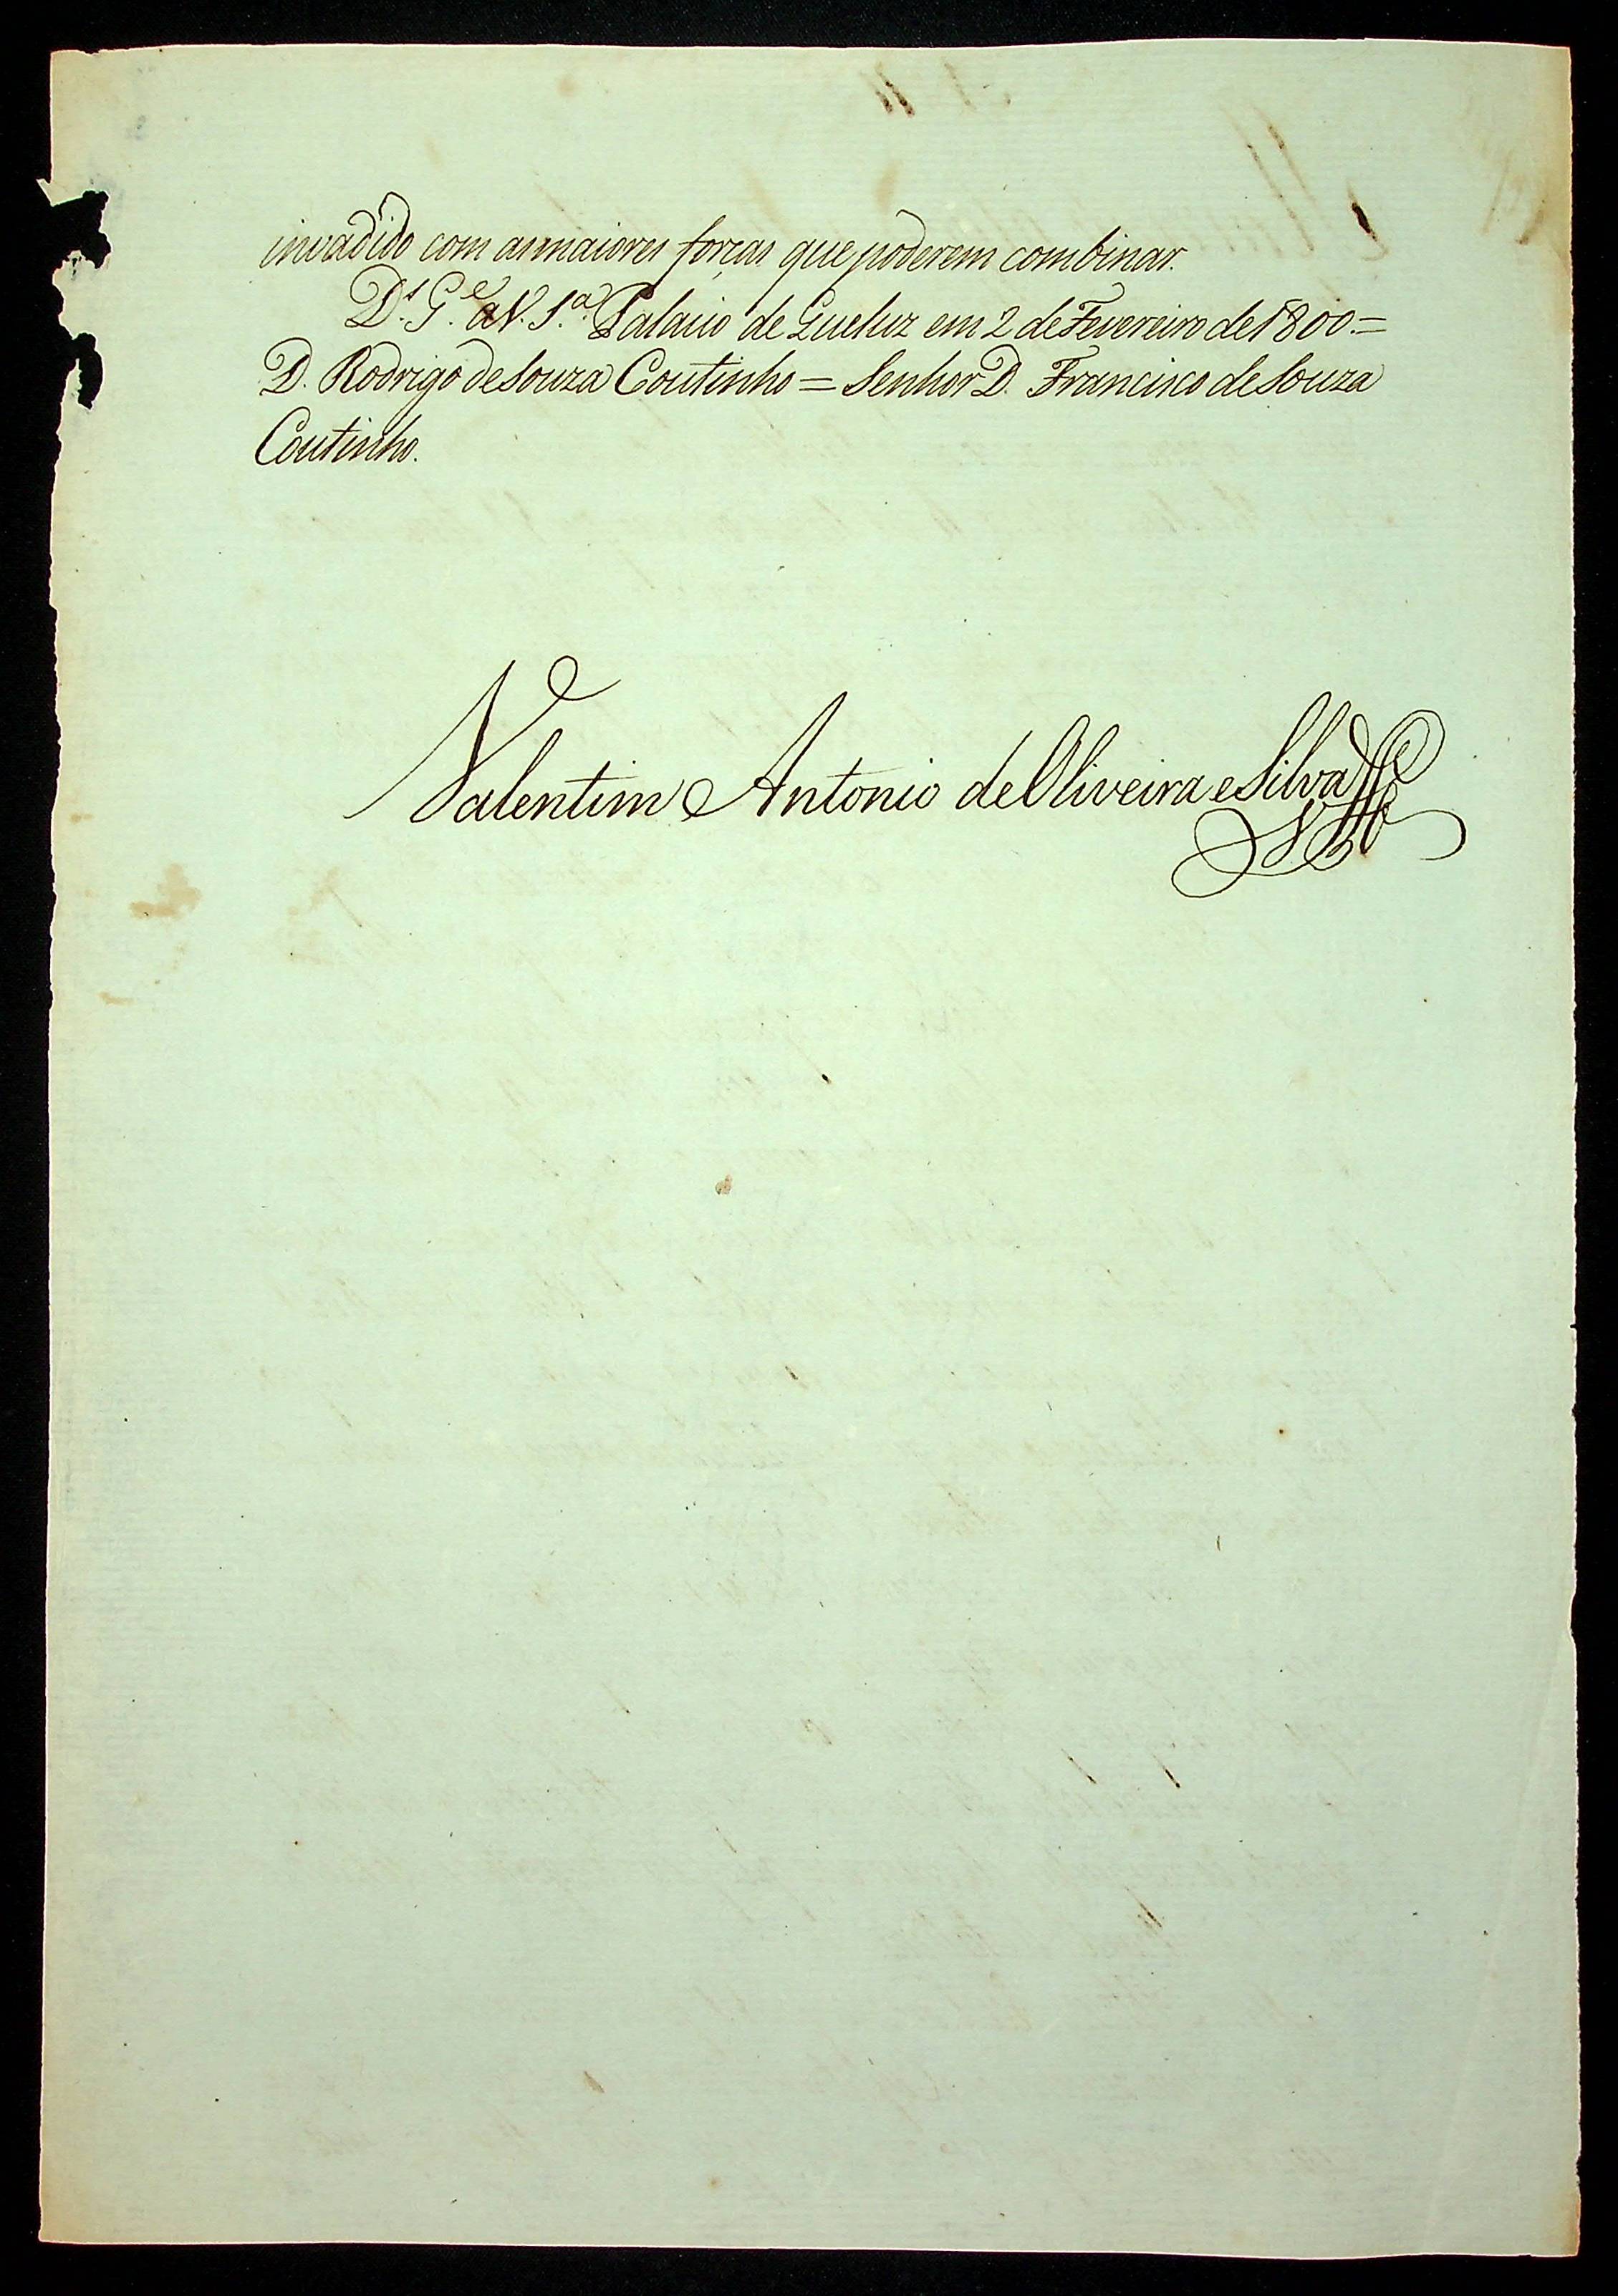 invadido com as maiores forças que poderem combinar.
D.s G.e a V. S.a Palacio de Queluz em 2 de Fevereiro de 1800. =
D. Rodrigo de Souza Coutinho = Senhor D. Francisco de Souza
Coutinho.
Valentim Antonio de Oliveira e Silva